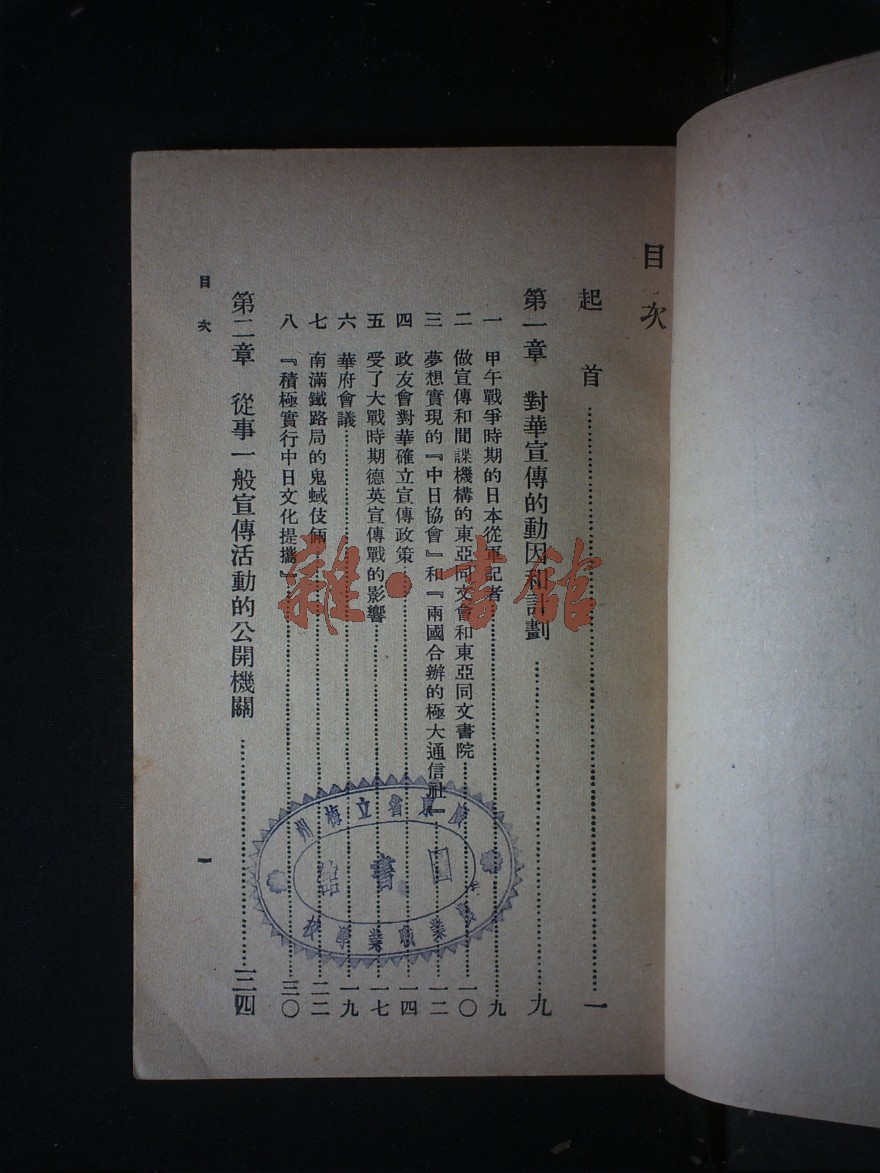 目次
起首……一
第一章 對華宣傳的動因和計劃……九
一 甲午戰爭時期的日本從軍記者……九
二 做宣傳和間諜機構的東亞同文會和東亞同文書院……一〇
三 夢想實現的『中日協會』和『兩國合辦的極大通信社』……一二
四 政友會對華確立宣傳政策……一四
五 受了大戰時期德英宣傳戰的影響……一七
六 華府會議……一九
七 南滿鐵路局的鬼蜮伎倆……二二
八 『積極實行中日文化提攜』……三〇
第二章 從事一般宣傳活動的公開機關……三四
目次
一
雜·書館
省立梅州
圖書館
業職業學校